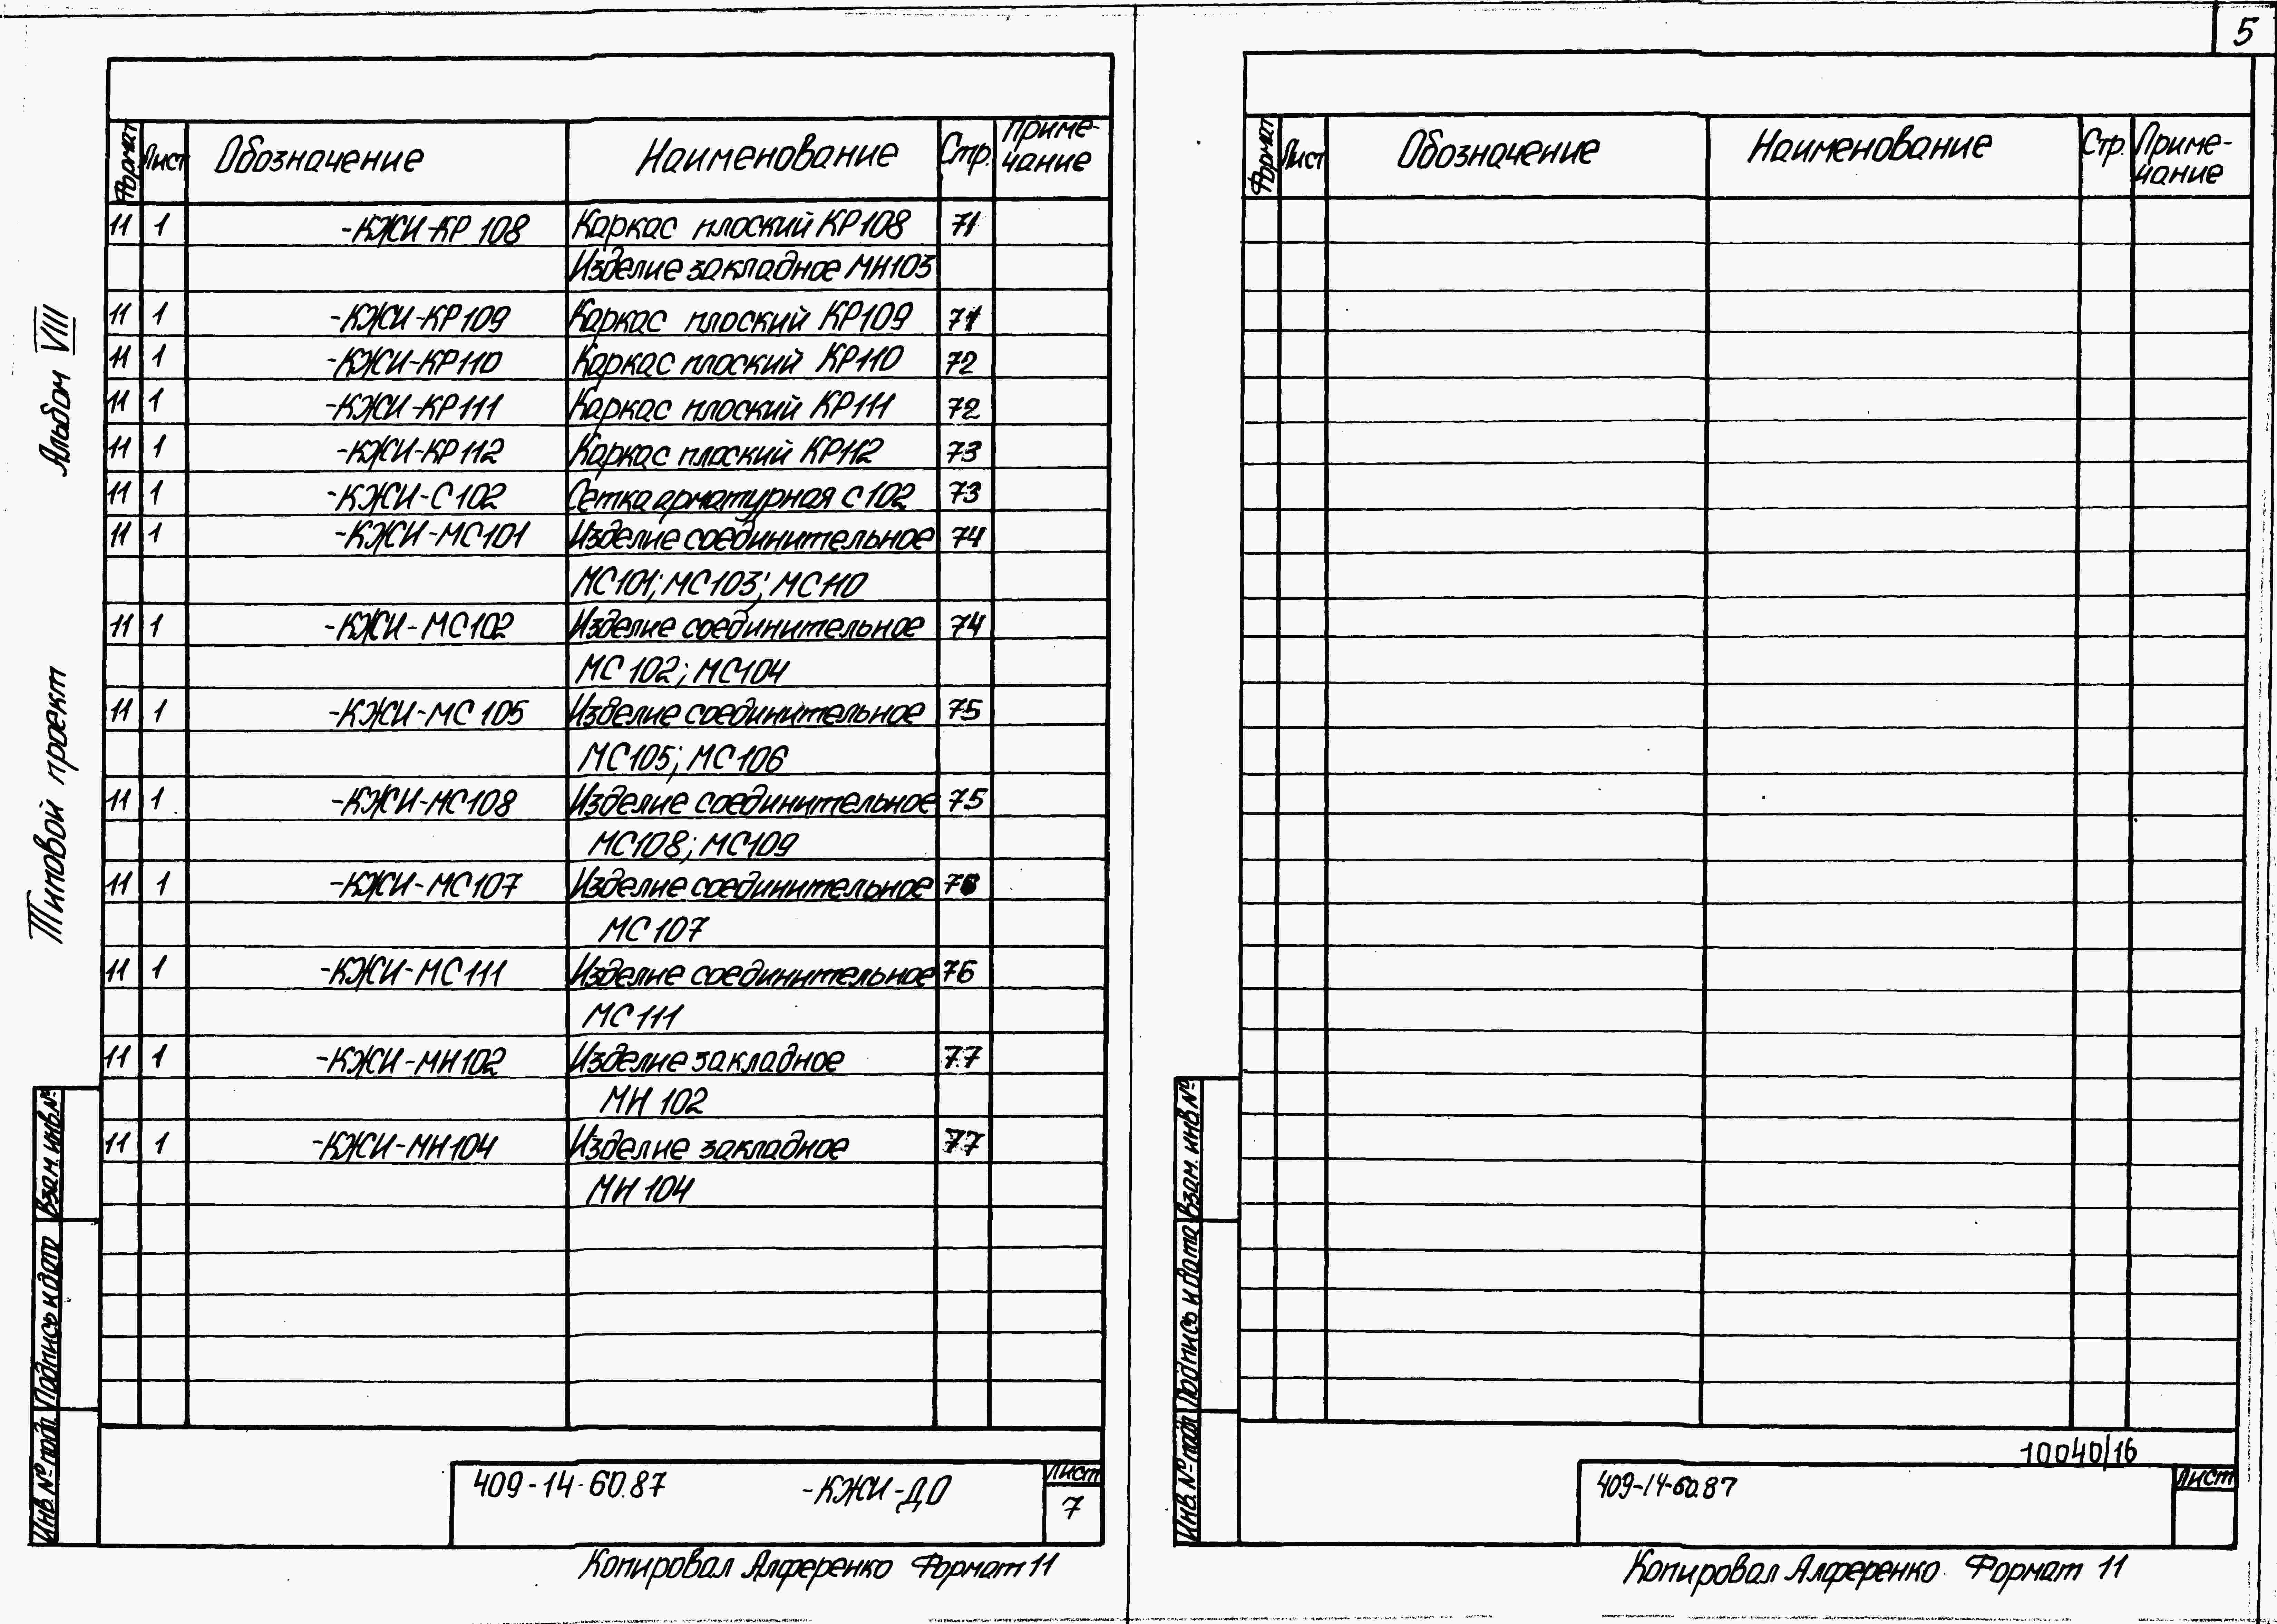 5
Альбом VIII
Типовой проект
Формат Лист Обозначение Наименование Стр. Приме-
чание
11 1 -КЖИ-КР 108 Каркас плоский КР108 71
Изделие закладное МН103
11 1 -КЖИ-КР109 Каркас плоский КР109 71
11 1 -КЖИ-КР110 Каркас плоский КР110 72
11 1 -КЖИ-КР111 Каркас плоский КР111 72
11 1 -КЖИ-КР112 Каркас плоский КР112 73
11 1 -КЖИ-С102 Сетка арматурная С102 73
11 1 -КЖИ-МС101 Изделие соединительное 74
МС101; МС103; МС110
11 1 -КЖИ-МС102 Изделие соединительное 74
МС 102; МС104
11 1 -КЖИ-МС 105 Изделие соединительное 75
МС105; МС106
11 1 -КЖИ-МС108 Изделие соединительное 75
МС108; МС109
11 1 -КЖИ-МС107 Изделие соединительное 76
МС 107
11 1 -КЖИ-МС111 Изделие соединительное 76
МС 111
11 1 -КЖИ-МН102 Изделие закладное 77
МН 102
11 1 -КЖИ-МН104 Изделие закладное 77
МН 104
Взам. инв.№
Подпись и дата
Инв. № подл
409-14-60.87 -КЖИ-ДО Лист
7
Копировал Алференко Формат 11
Формат Лист Обозначение Наименование Стр. Приме-
чание
Взам. инв №
Подпись и дата
Инв. № подл
10040/16
409-14-60.87 Лист
Копировал Алференко Формат 11